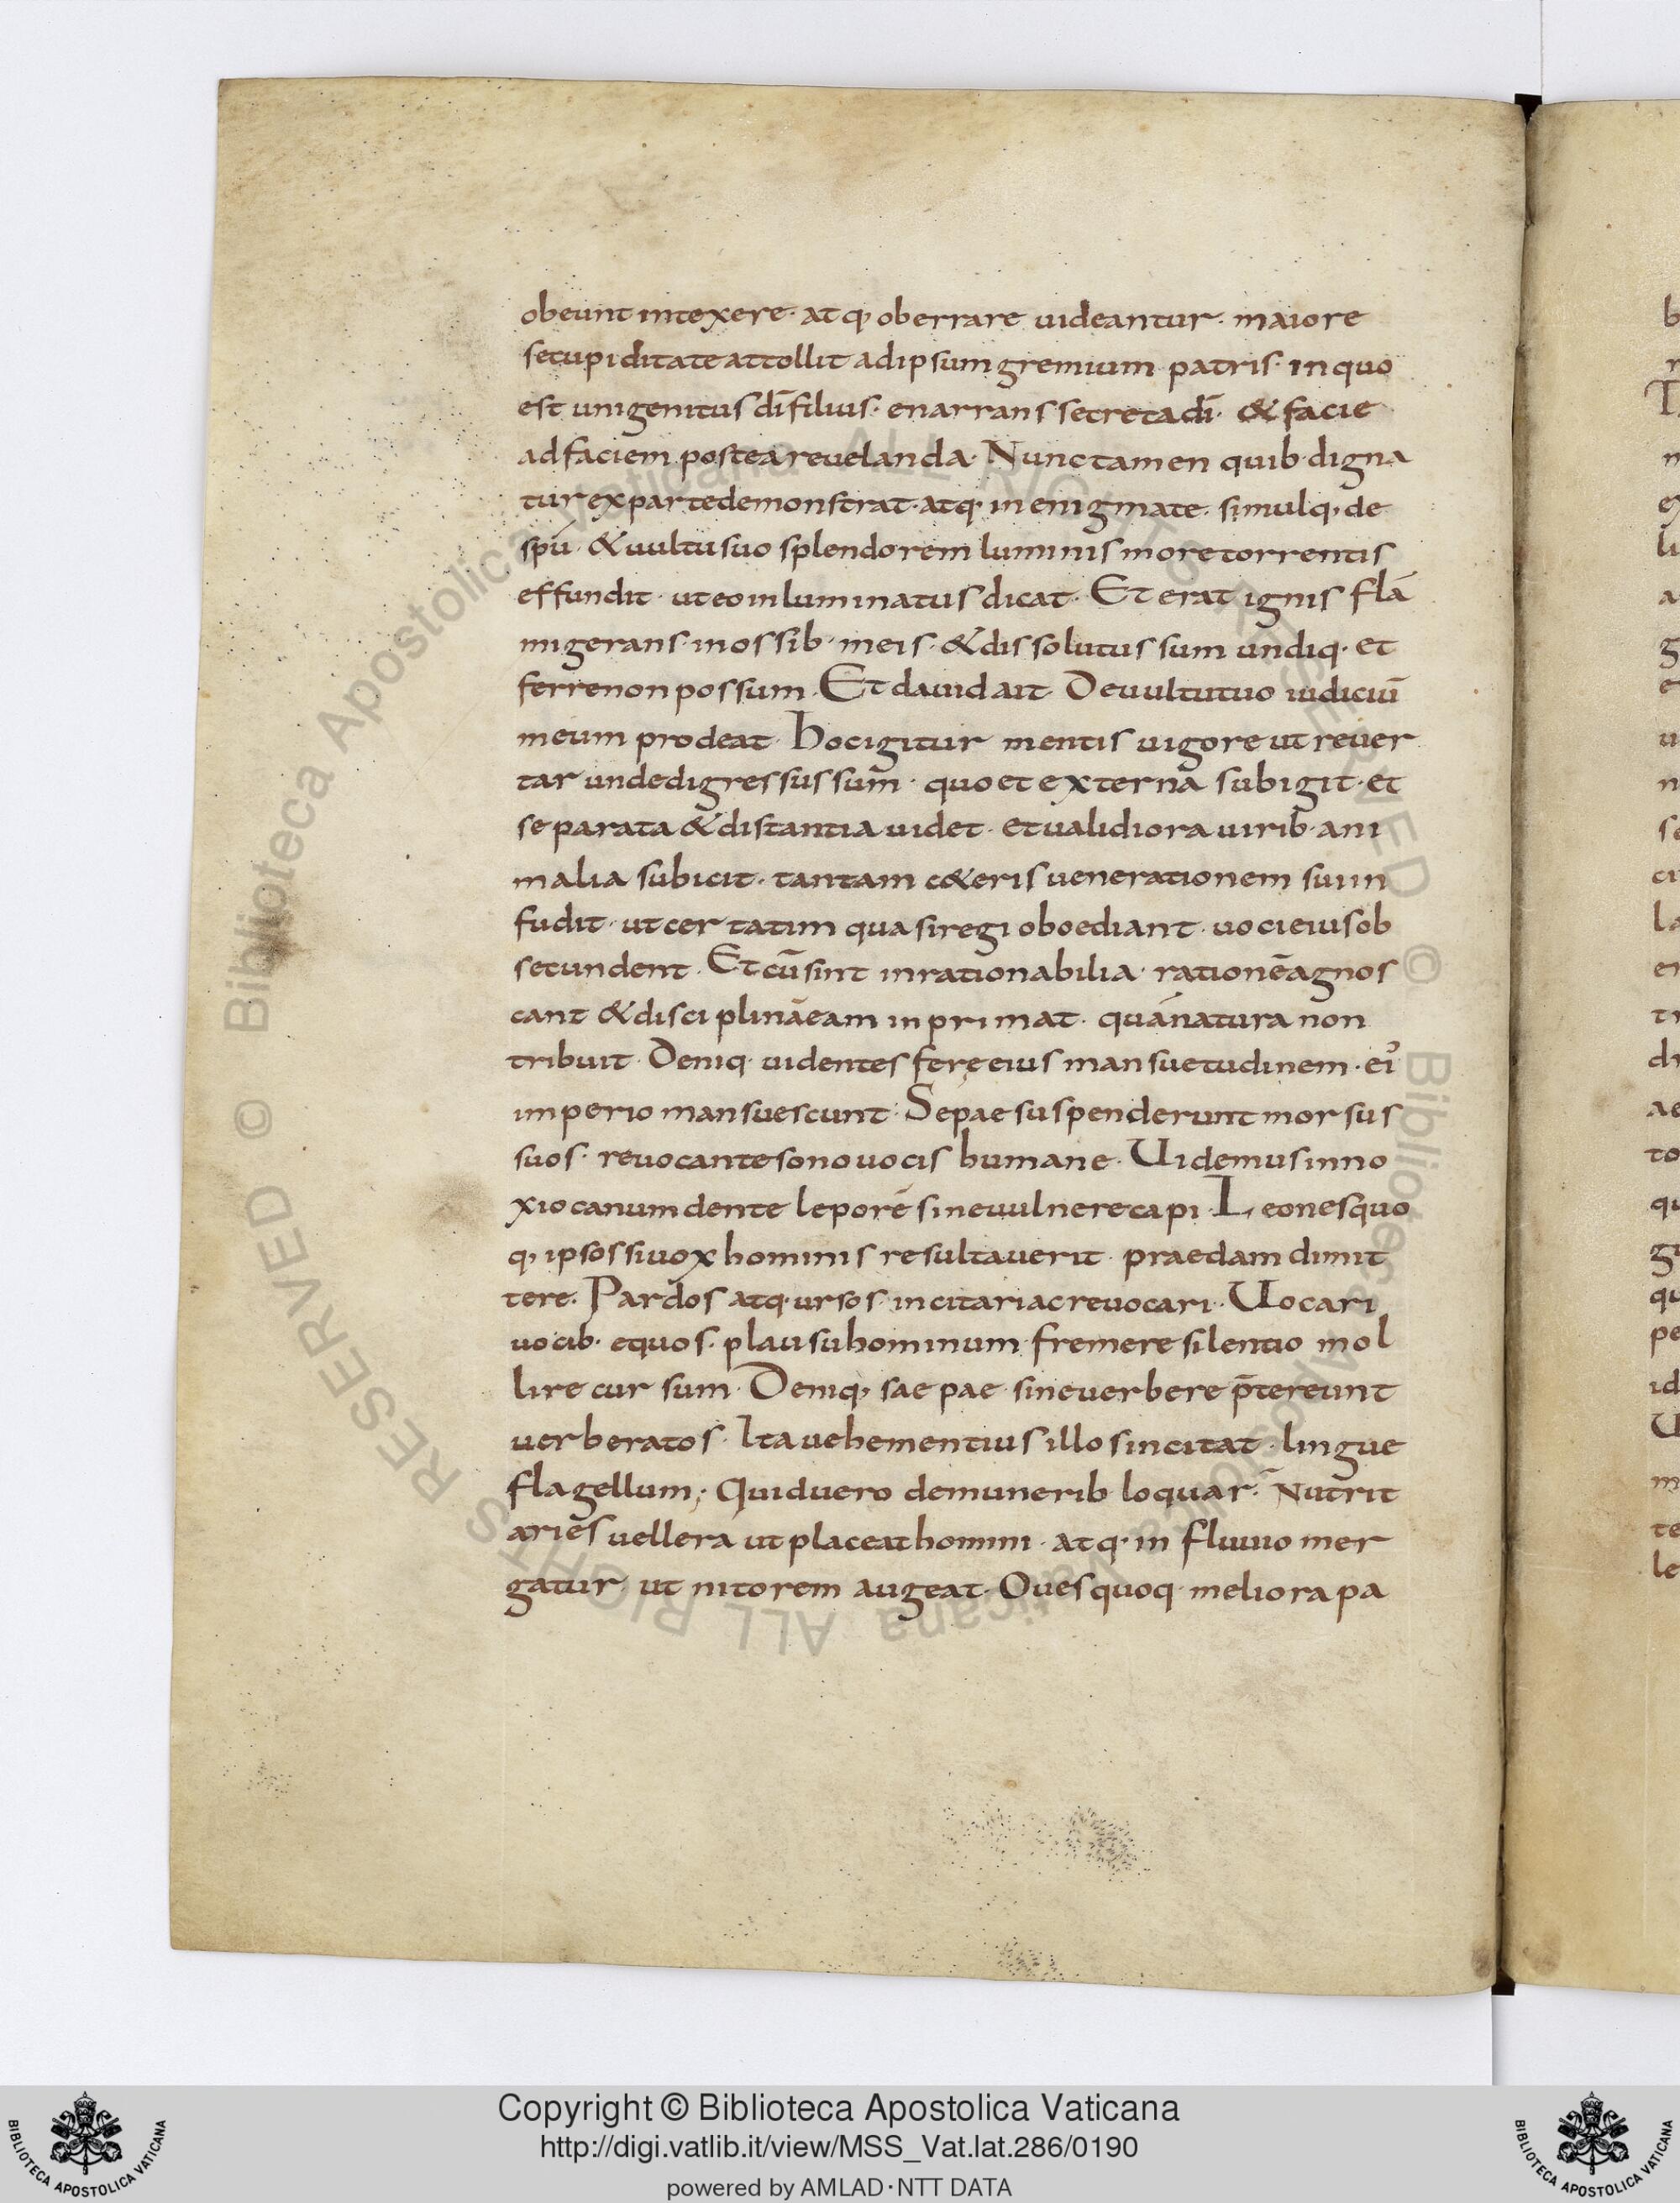 obeunt intexere· atq; oberrare uideantur· maiore
secupiditate attollit adipsum gremium patris· inquo
est unigenitus dī filius· enarrans secreta dī· & facie
adfaciem postea reuelanda· Nunc tamen quib· digna
tur exparte demonstrat· atq· in enigmate· simulq; de
spū· & uultu suo splendorem luminis more torrentis
effundit· ut eo inluminatus dicat· Et erat ignis flā
migerans· in ossib· meis· & dissolutus sum undiq· et
ferre non possum· Et dauid ait· De uultu tuo iudiciū
meum prodeat· hoc igitur mentis uigore ut reuer
tar unde digressus sum· quo et externa subigit· et
separata & distantia uidet· et ualidiora uirib· ani
malia subicit· tantam c&eris uenerationem sui in
fudit· ut certatim quasi regi oboediant· uoci eius ob
secundent· Et cū sint inrationabilia· rationē agnos
cant & disciplinā eam inprimat· quā natura non
tribuit· Deniq· uidentes fere eius mansuetudinem· ei'
imperio mansuescunt· Sepae suspenderunt morsus
suos· reuocante sono uocis humane· Uidemus inno
xio canum dente leporē sine uulnere capi· Leones quo
q; ipsos si uox hominis resultauerit· praedam dimit
tere· Pardos atq· ursos· incitari ac reuocari· Uocari
uocib· equos· plausu hominum fremere silentio mol
lire cursum· Deniq; saepae sine uerbere p̄tereunt
uerberatos· Ita uehementius illos incitat· lingue
flagellum; Quid uero de munerib loquar· Nutrit
aries uellera ut placeat homini· atq· in fluuio mer
gatur ut nitorem augeat· Oues quoq· meliora pa
Copyright © Biblioteca Apostolica Vaticana
http://digi.vatlib.it/view/MSS_Vat.lat.286/0190
powered by AMLAD·NTT DATA
BIBLIOTECA APOSTOLICA VATICANA
BIBLIOTECA APOSTOLICA VATICANA
© Biblioteca Apostolica Vaticana ALL RIGHTS RESERVED © Biblioteca Apostolica Vaticana ALL RIGHTS RESERVED